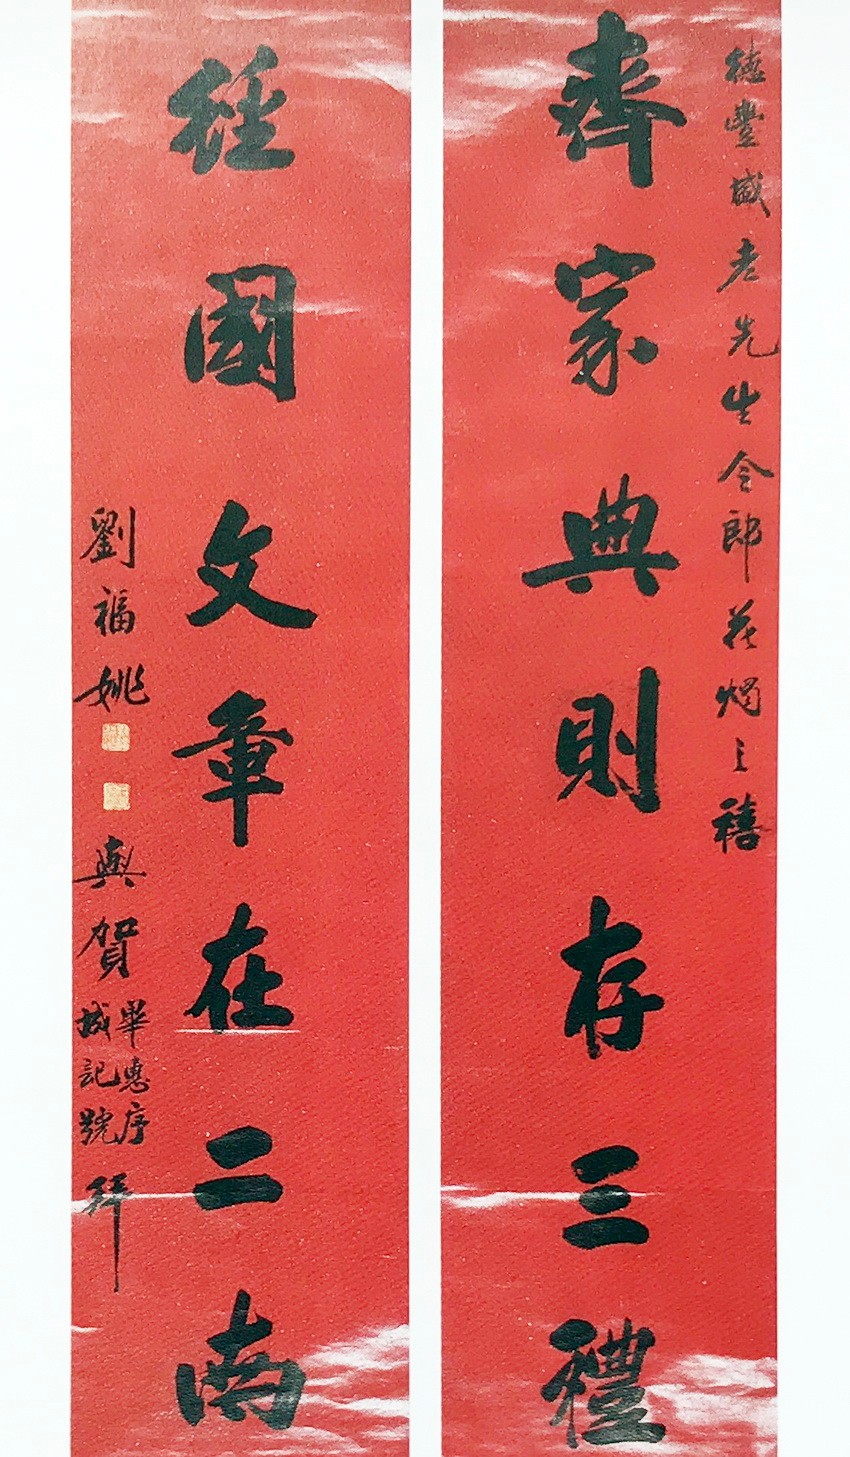 德豐盛老先生令郎花燭之禧
齊家典則存三禮
經國文章在二南
劉福姚
賀
畢惠序
記號
拜